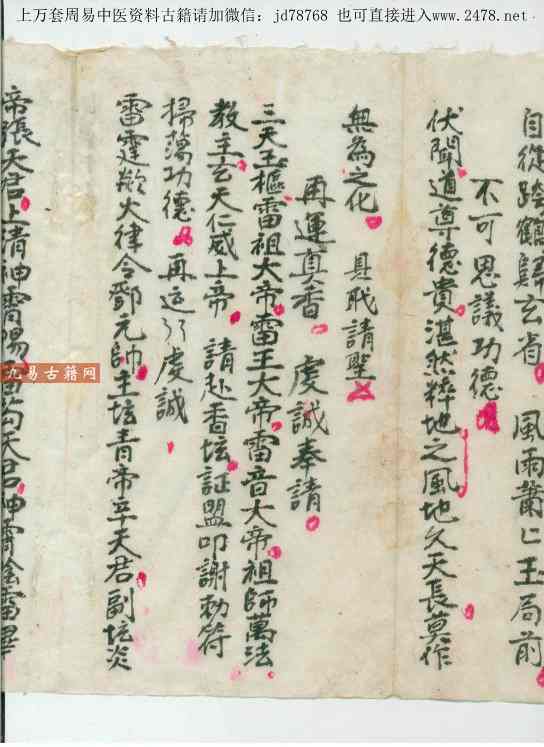 上万套周易中医资料古籍请加微信：jd78768 也可直接进入www.2478.net.
自從跨鶴歸玄省 風雨蕭匕玉局前
不可思議功德
伏聞道尊德貴湛然粹地之風地久天長莫作
無為之化 具職請聖
再運真香 虔誠奉請
三天玉樞雷祖大帝雷王大帝雷音大帝祖師萬法
教主玄天仁威上帝 請赴香坛証盟叩謝勅符
掃蕩功德 再运 虔誠
雷霆歘火律令鄧元帥主坛青帝辛天君副坛炎
帝張天君上清神霄陽 苟天君神霄陰雷畢
九易古籍网